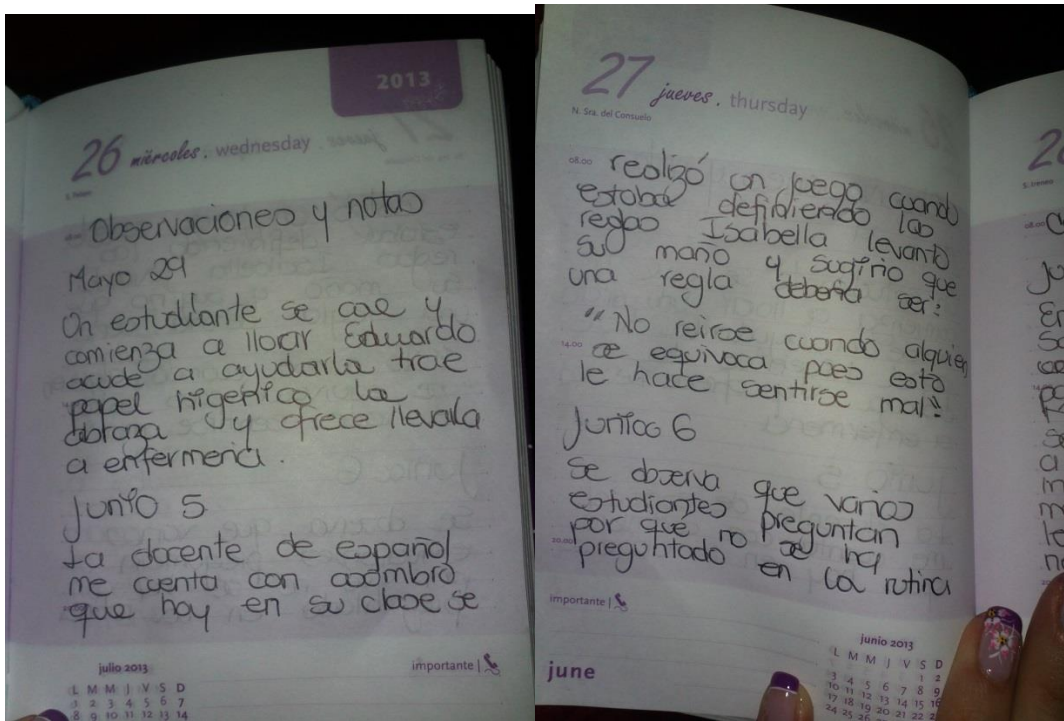 2013
26 miércoles . wednesday
Observaciones y notas
Mayo 29
Un estudiante se cae y
comienza a llorar Eduardo
acude a ayudarla trae
papel higénico la
abraza y ofrece llevarla
a enfermeria.
junio 5
La docente de español
me cuenta con asombro
que hoy en su clase se
julio 2013
importante |
L M M J V S D
1 2 3 4 5 6 7
8 9 10 11 12 13 14
27 jueves . thursday
N. Sra. del Consuelo
08.00 realizó un juego cuando
estaba definiendo las
reglas Isabella levanto
su maño y sugirio que
una regla debería ser:
"No reirse cuando alguien
14.00 se equivoca pues esto
le hace sentirse mal"
Junio 6
Se observa que varios
estudiantes preguntan
por que no se ha
20.00 preguntado en la rutina
importante |
june
junio 2013
L M M J V S D
1 2
3 4 5 6 7 8 9
10 11 12 13 14 15 16
17 18 19 20 21 22
24 25 26